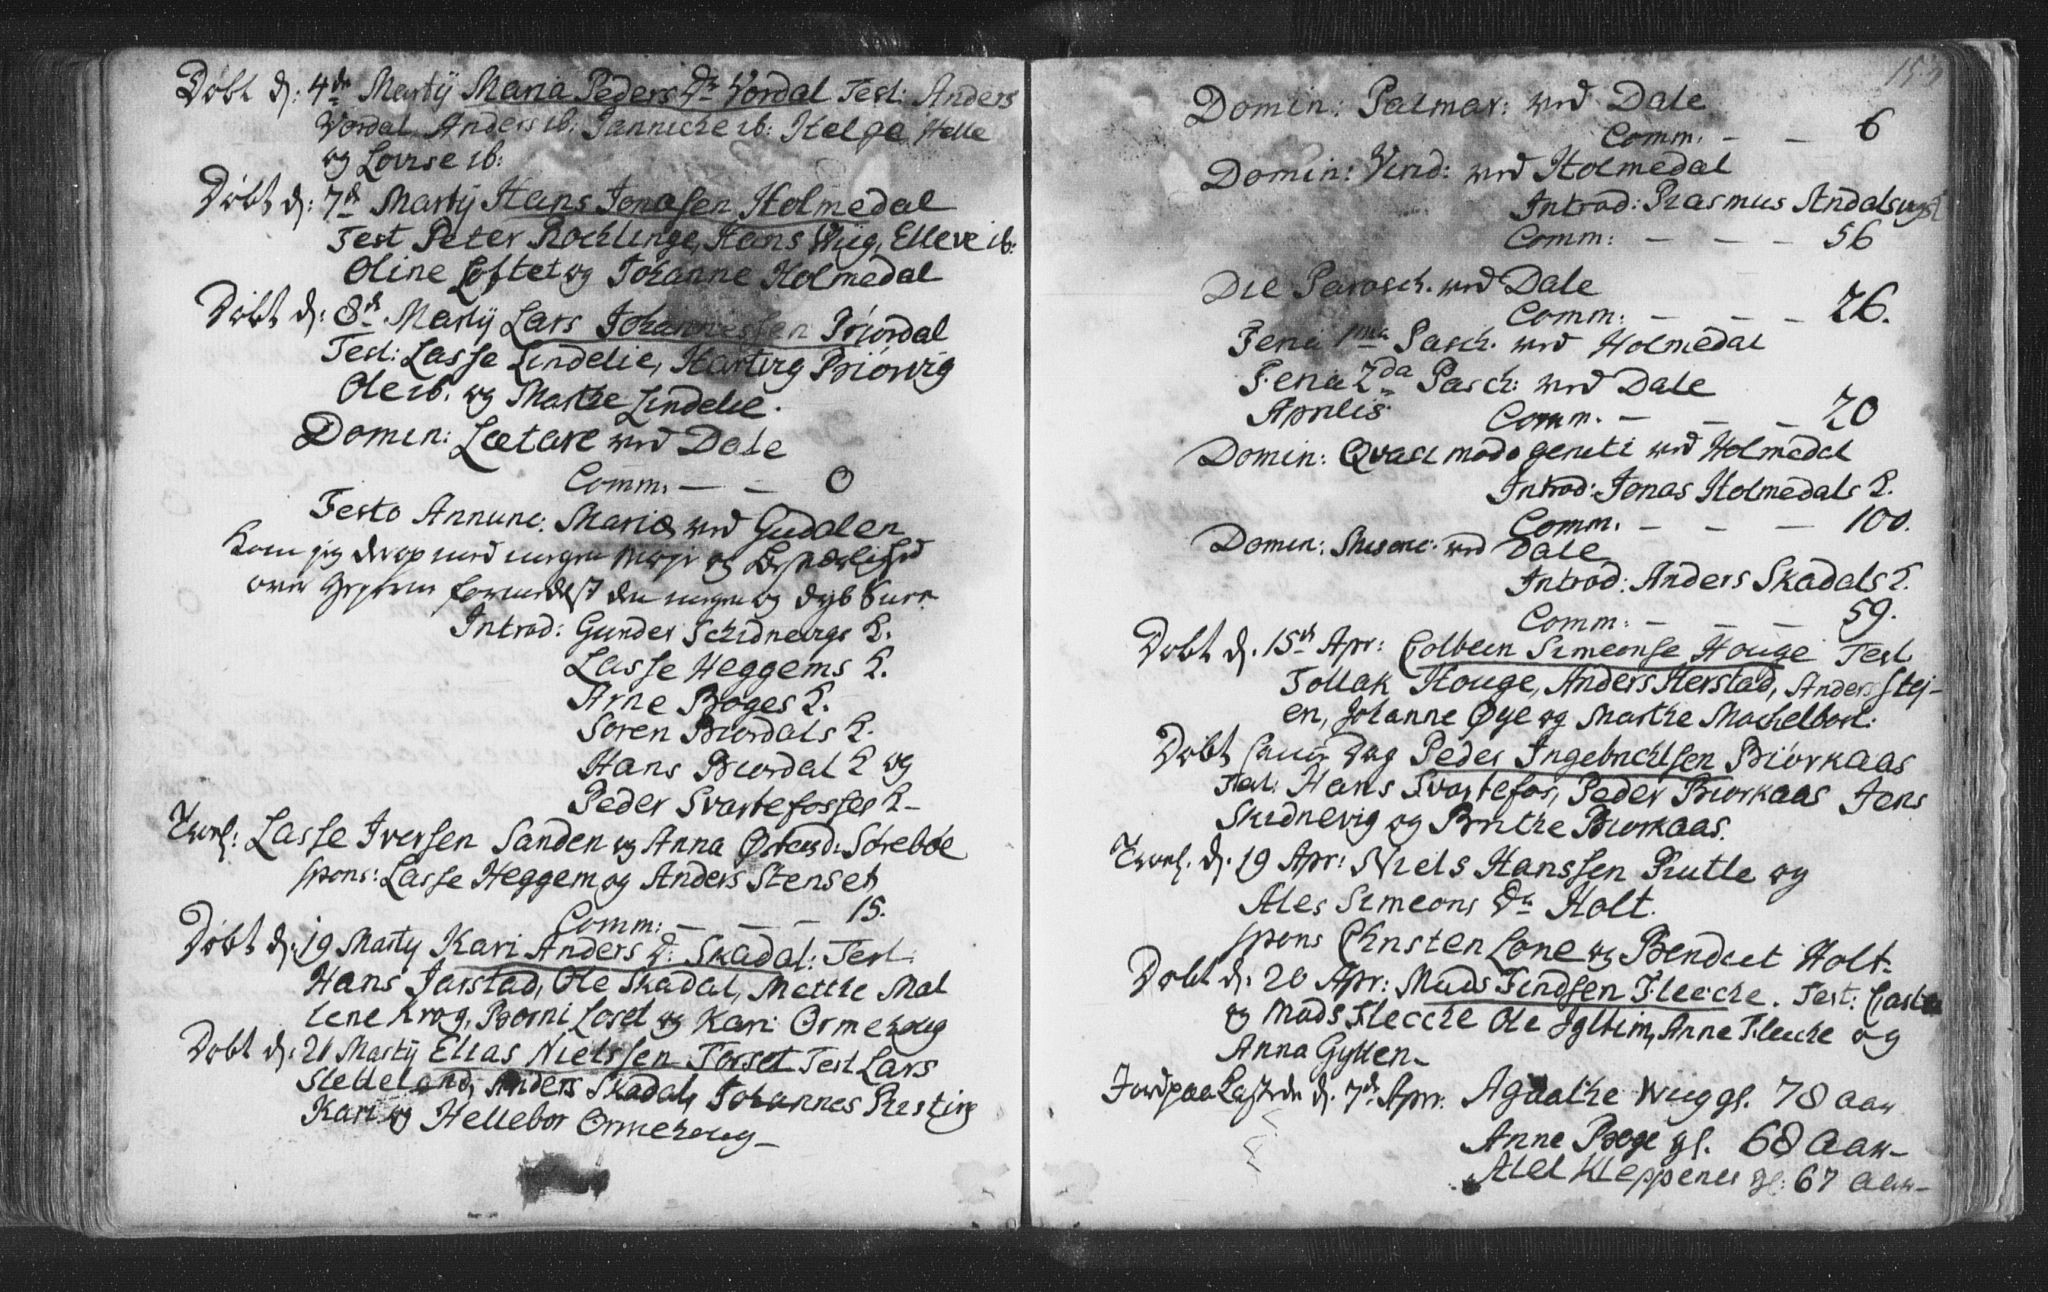 Døbt d: 4de Martÿ Maria Peders Dr Vordal Test: Anders
Vordal Anders ib: Jannicke ib: Helge Helle
og Lovise ib:
Døbt d: 7de Martÿ Hans Jonassen Holmedal
Test Peter Rochlinge, Hans Wiig, Elleve ib:
Oline Loftet og Johanne Holmedal
Døbt d: 8de Martÿ Lars Johannessen Biørdal
Test: Lasse Lindelie, Hartvig Biørvig
Ole ib. og Marthe Lindelie.
Domin: Lætare ved Dale
Comm: — — 0
Festo Annunc: Mariæ ved Gudalen
Kom jeg derop med megen Møje og Besværlighed
over formedelst den megen og dyb Snee
Introd: Gunder Schidnevigs K.
Lasse Heggems K.
Arne Boges K.
Søren Biordals K.
Hans Biordal K og
Peder Svartefosses K—
Trol: Lasse Iversen Sanden og Anna Sørebøe
spons: Lasse Heggem og Anders Stenset
Comm: — — — 15.
Døbt d: 19 Marty Kari Anders D: Skadal: Test:
Hans Jarstad, Ole Skadal, Metthe Mal
lene Krog, Borni Loset og Kari Ormehoug
Døbt d: 21 Martÿ Elias Nielssen Torset Test Lars
Sletteland, Anders Skadal, Johannes Risting
Kari og Hellebor Ormehoug—
Domin: Palmar: ved Dale
Comm: — — 6
Domin: Vind: ved Holmedal
Introd: Rasmus Andals
Comm: — — — 56
Die Parasch. ved Dale
Comm: — — — 26.
Feria 1ma Pasch. ved Holmedal
Feria 2da Pasch: ved Dale
Aprilis Comm. — — — 20
Domin: Qvasi modo geniti ved Holmedal
Introd: Jonas Holmedals K.
Comm. — — — 100.
Domin: Miseric: ved Dale
Introd: Anders Skadals K.
Comm: — — — 59.
Døbt d. 15de Apr: Colbeen Simeonse Houge Test
Tollak Houge, Anders Herstad, Anders Stej-
en, Johanne Øye og Marthe Machelbost:
Døbt samme Dag Peder Ingebrichtsen Biörkaas
Test: Hans Svartefos, Peder Biorkaas Jens
Skidnevig og Brithe Biorkaas.
Trol. d. 19 Apr: Niels Hanssen Rutle og
Ales Simeons Dr Holt.
spons Christen Lone og Bendict Holt—
Døbt d: 20 Apr: Mads Findsen Flecche. Test:
og Mads Flecche Ole Anne Flecche og
Anna Gytten—
Jordpaa Kastede d. 7de Apr: Agathe Wiig gl. 78 aar
Anne Boge gl. 68 Aar—
Alet Kleppenes gl: 67 Aar—